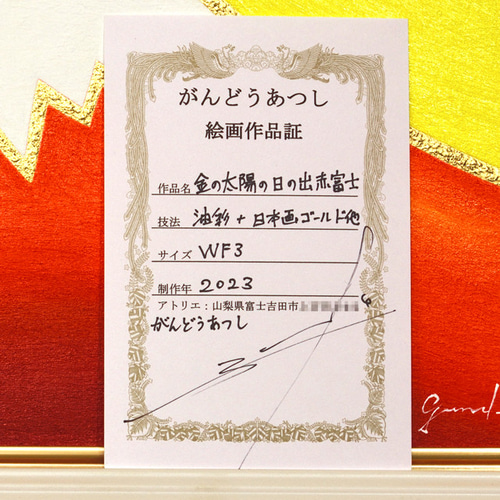 がんどうあつし
絵画作品証
作品名 金の太陽の日の出赤富士
技法 油彩+日本画ゴールド他
サイズ WF3
制作年 2023
アトリエ:山梨県富士吉田市
がんどうあつし